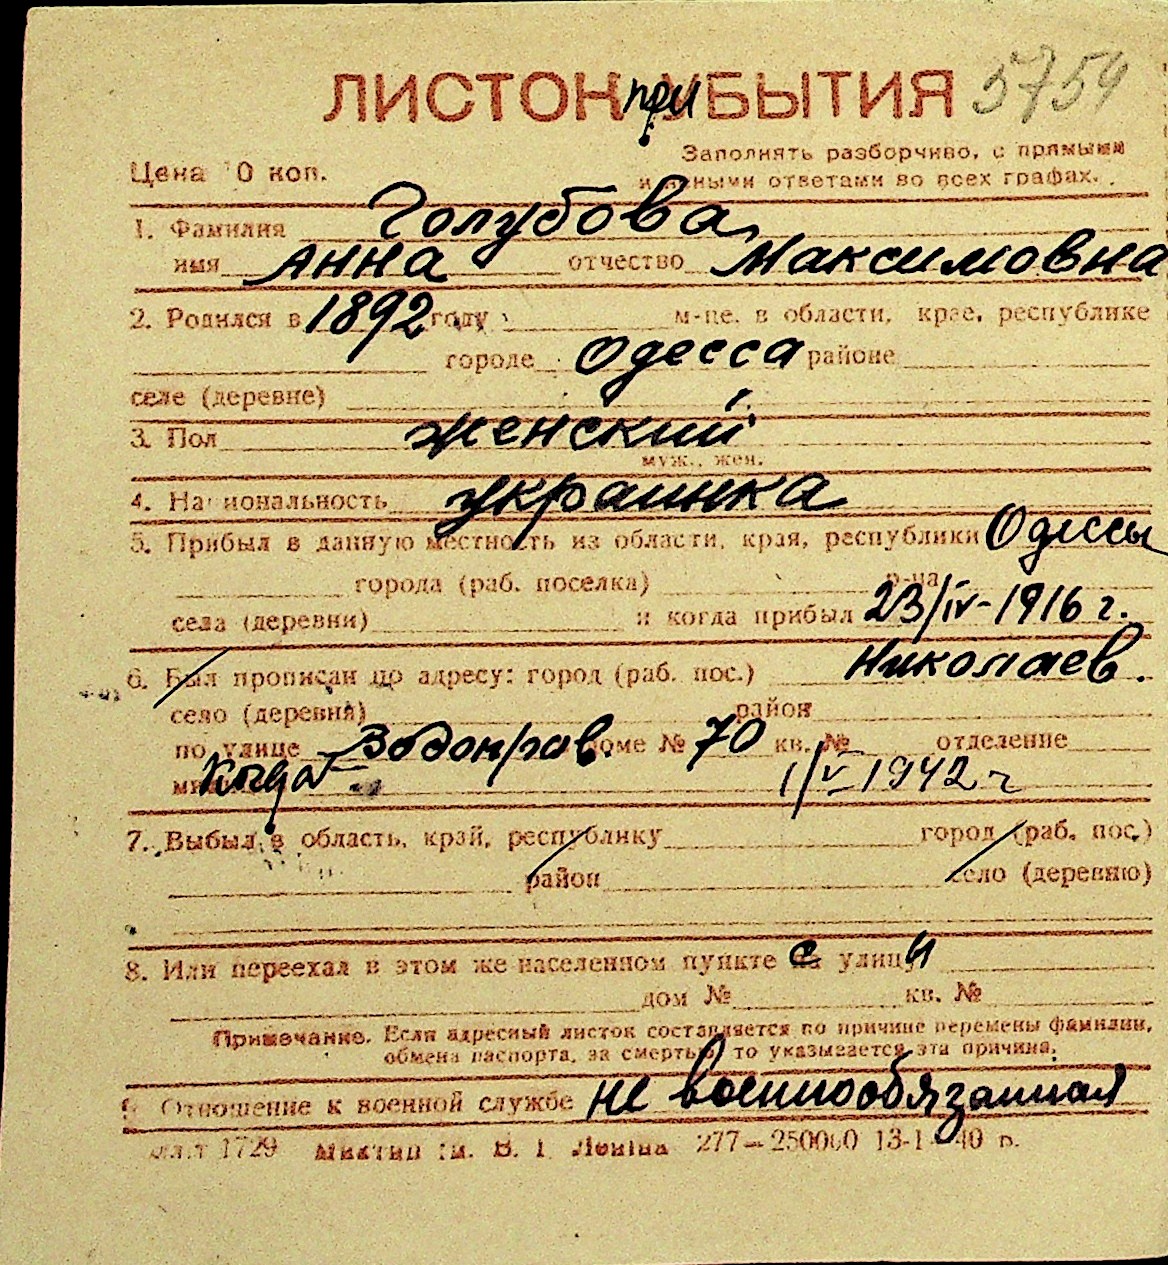 ЛИСТОК при УБЫТИЯ 5754
Цена 10 коп.
Заполнять разборчиво, с прямыми
и ясными ответами во всех графах.
1. Фамилия Голубова
имя Анна отчество Максимовна
2. Родился в 1892 году м-це. в области, крае, республике
городе Одесса районе
селе (деревне)
3. Пол женский
муж., жен.
4. Национальность украинка
5. Прибыл в данную местность из области, края, республики Одессы
города (раб. поселка) р-на
села (деревни) и когда прибыл 23/IV-1916 г.
6. Был прописан по адресу: город (раб. пос.) Николаев.
село (деревня) район
по улице Водоправ. доме № 70 кв. № отделение
Когда 1/V 1942 г
7. Выбыл в область, край, республику город (раб. пос.)
район село (деревню)
8. Или переехал в этом же населенном пункте с улицы
дом № кв. №
Примечание. Если адресный листок составляется по причине перемены фамилии,
обмена паспорта, за смертью, то указывается эта причина.
9. Отношение к военной службе не военнообязанная
1729 Миктип ім. В. І. Леніна 277—250000 13-1 40 р.